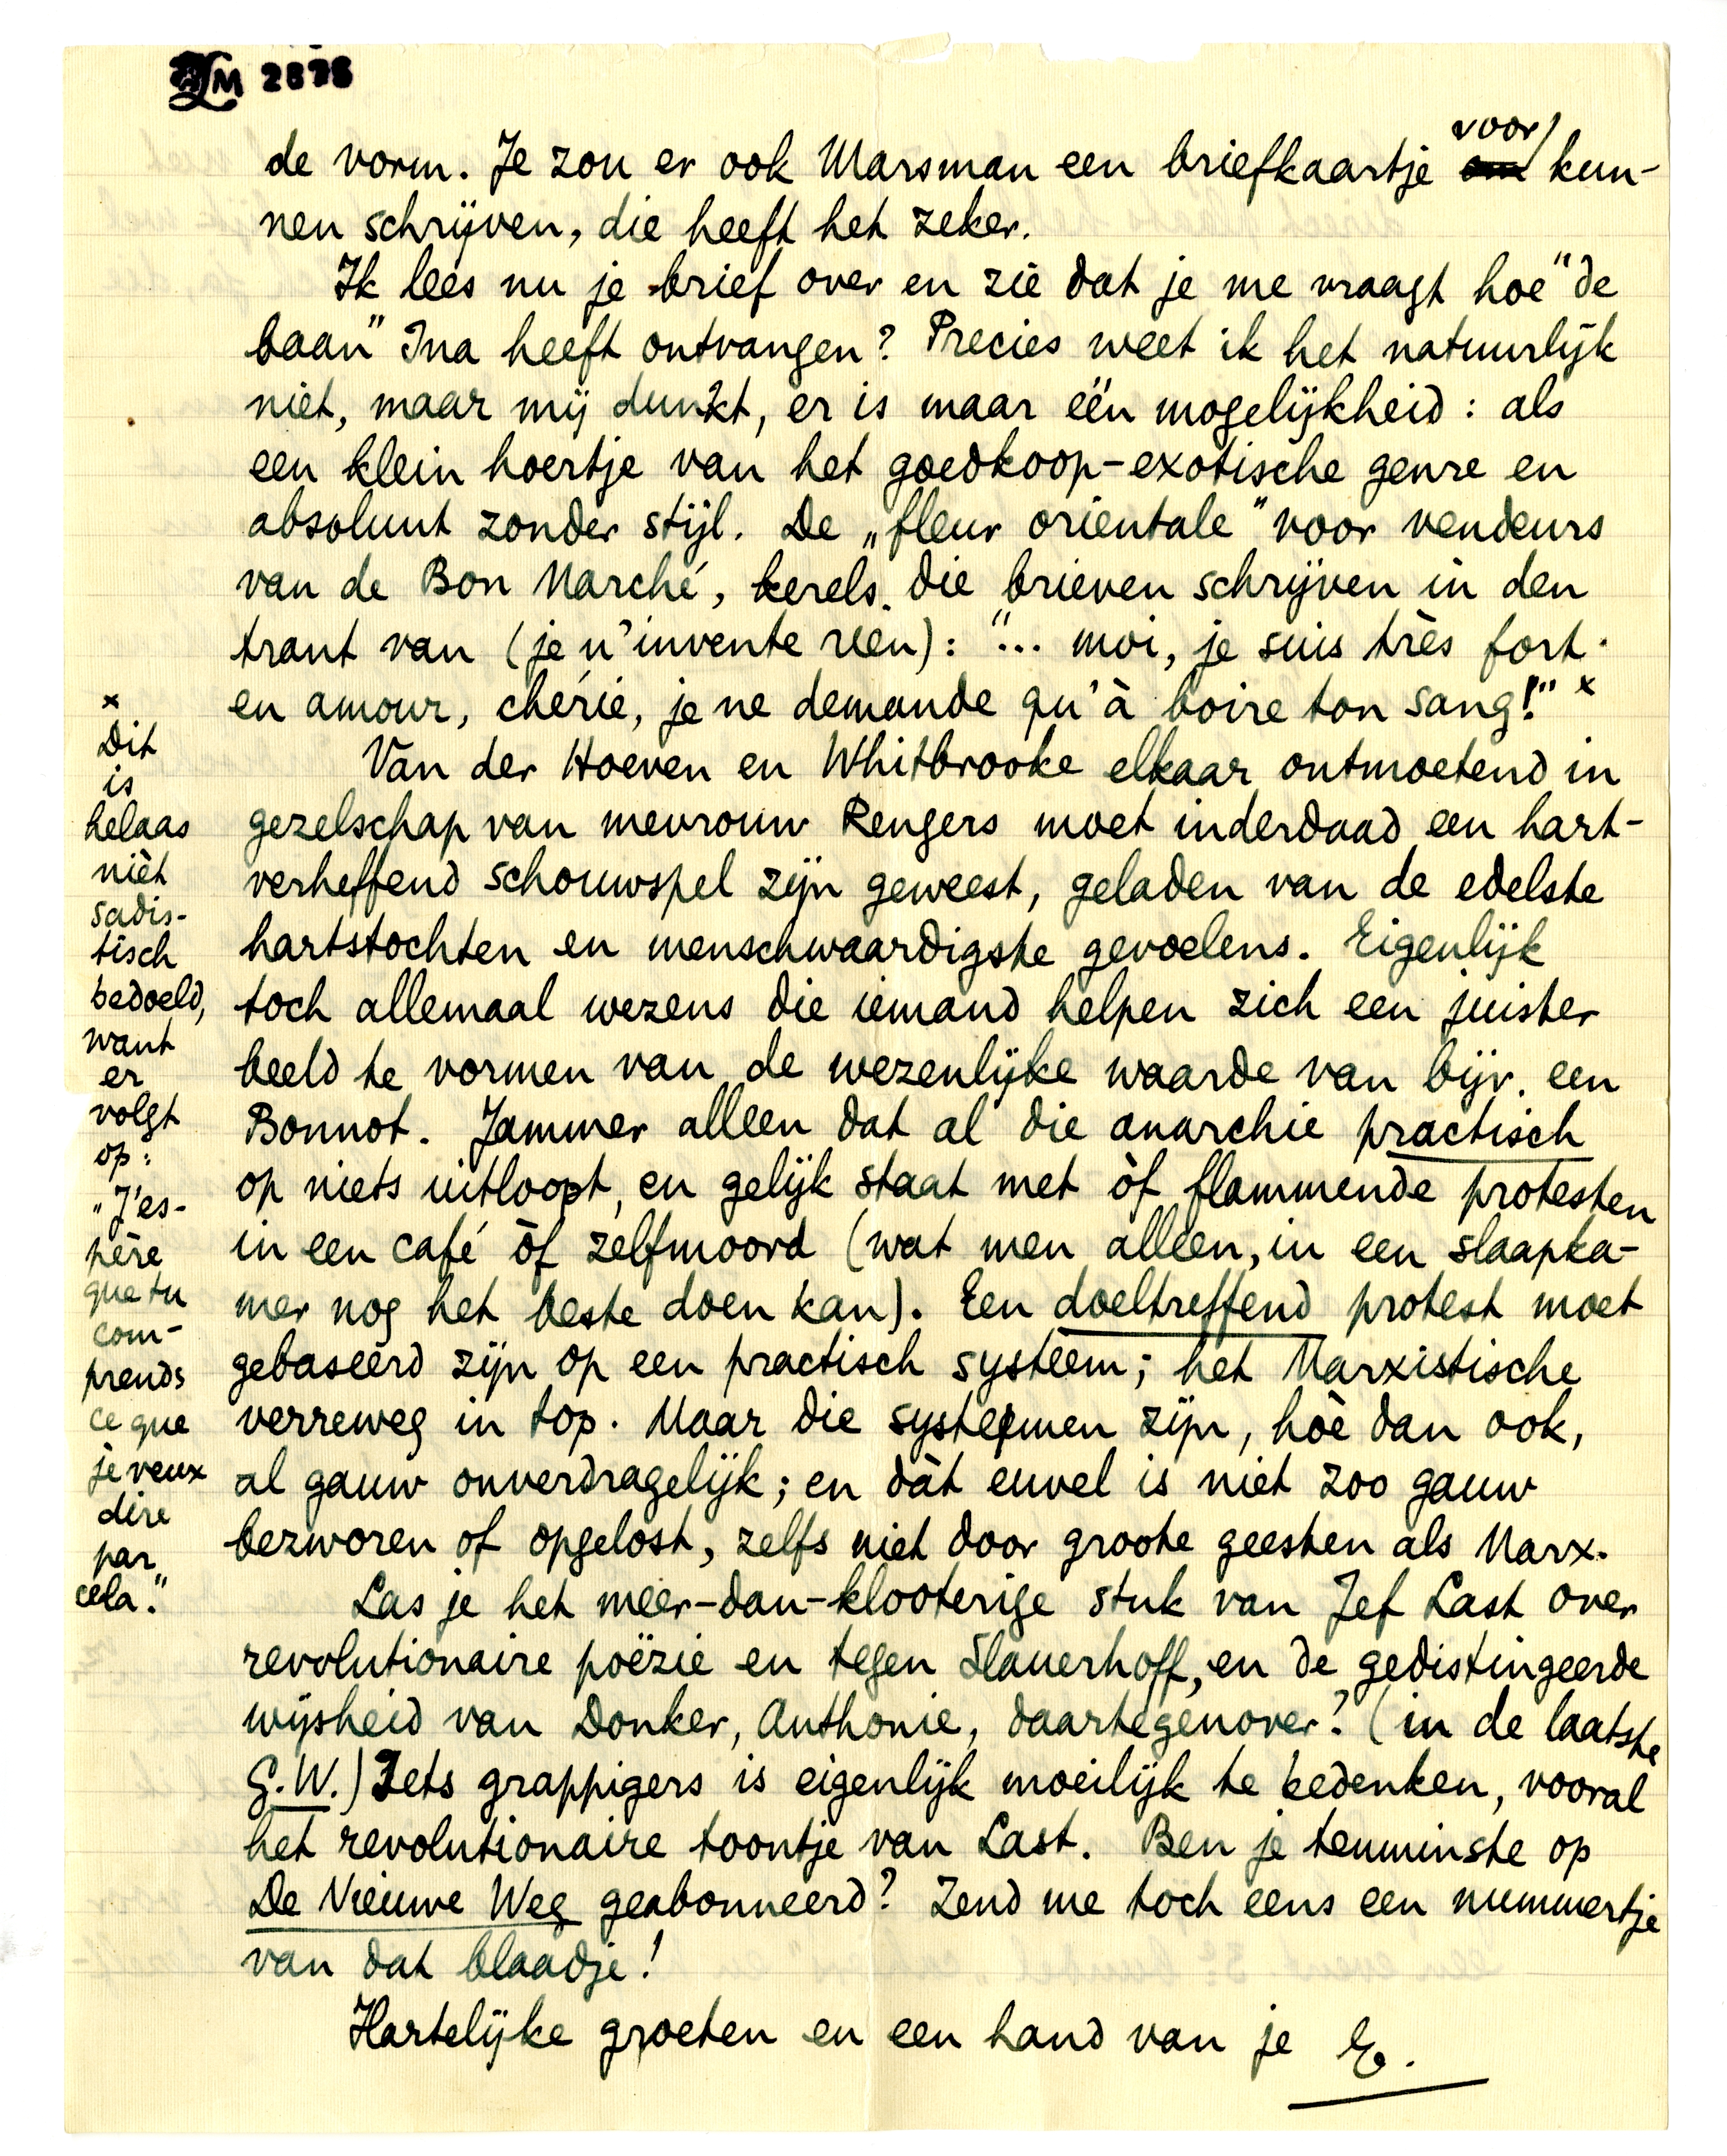 LM 2878
de vorm. Je zou er ook Marsman een briefkaartje om voor kun-
nen schrijven, die heeft het zeker.
Ik lees nu je brief over en zie dat je me vraagt hoe "de
baan" Ina heeft ontvangen? Precies weet ik het natuurlijk
niet, maar mij dunkt, er is maar één mogelijkheid: als
een klein hoertje van het goedkoop-exotische genre en
absoluut zonder stijl. De „fleur orientale" voor vendeurs
van de Bon Marché, kerels die brieven schrijven in den
trant van (je n'invente rien): "... moi, je suis très fort
en amour, chérie, je ne demande qu'à boire ton sang!" x
Van der Hoeven en Whitbrooke elkaar ontmoetend in
gezelschap van mevrouw Rengers moet inderdaad een hart-
verheffend schouwspel zijn geweest, geladen van de edelste
hartstochten en menschwaardigste gevoelens. Eigenlijk
toch allemaal wezens die iemand helpen zich een juister
beeld te vormen van de wezenlijke waarde van bijv. een
Bonnot. Jammer alleen dat al die anarchie practisch
op niets uitloopt, en gelijk staat met òf flammende protesten
in een café òf zelfmoord (wat men alleen, in een slaapka-
mer nog het beste doen kan). Een doeltreffend protest moet
gebaseerd zijn op een practisch systeem; het Marxistische
verreweg in top. Maar die systemen zijn, hòe dan ook,
al gauw onverdragelijk; en dàt euvel is niet zoo gauw
bezworen of opgelost, zelfs niet door groote geesten als Marx.
Las je het méér-dan-klooterige stuk van Jef Last over
revolutionaire poëzie en tegen Slauerhoff, en de gedistingeerde
wijsheid van Donker, Anthonie, daartegenover? (in de laatste
G.W.) Iets grappigers is eigenlijk moeilijk te bedenken, vooral
het revolutionaire toontje van Last. Ben je tenminste op
De Nieuwe Weg geabonneerd? Zend me toch eens een nummertje
van dat blaadje!
Hartelijke groeten en een hand van je E.
x
Dit
is
helaas
nièt
sadis-
tisch
bedoeld,
want
er
volgt
op:
"J'es-
père
que tu
com-
prends
ce que
je veux
dire
par
cela."